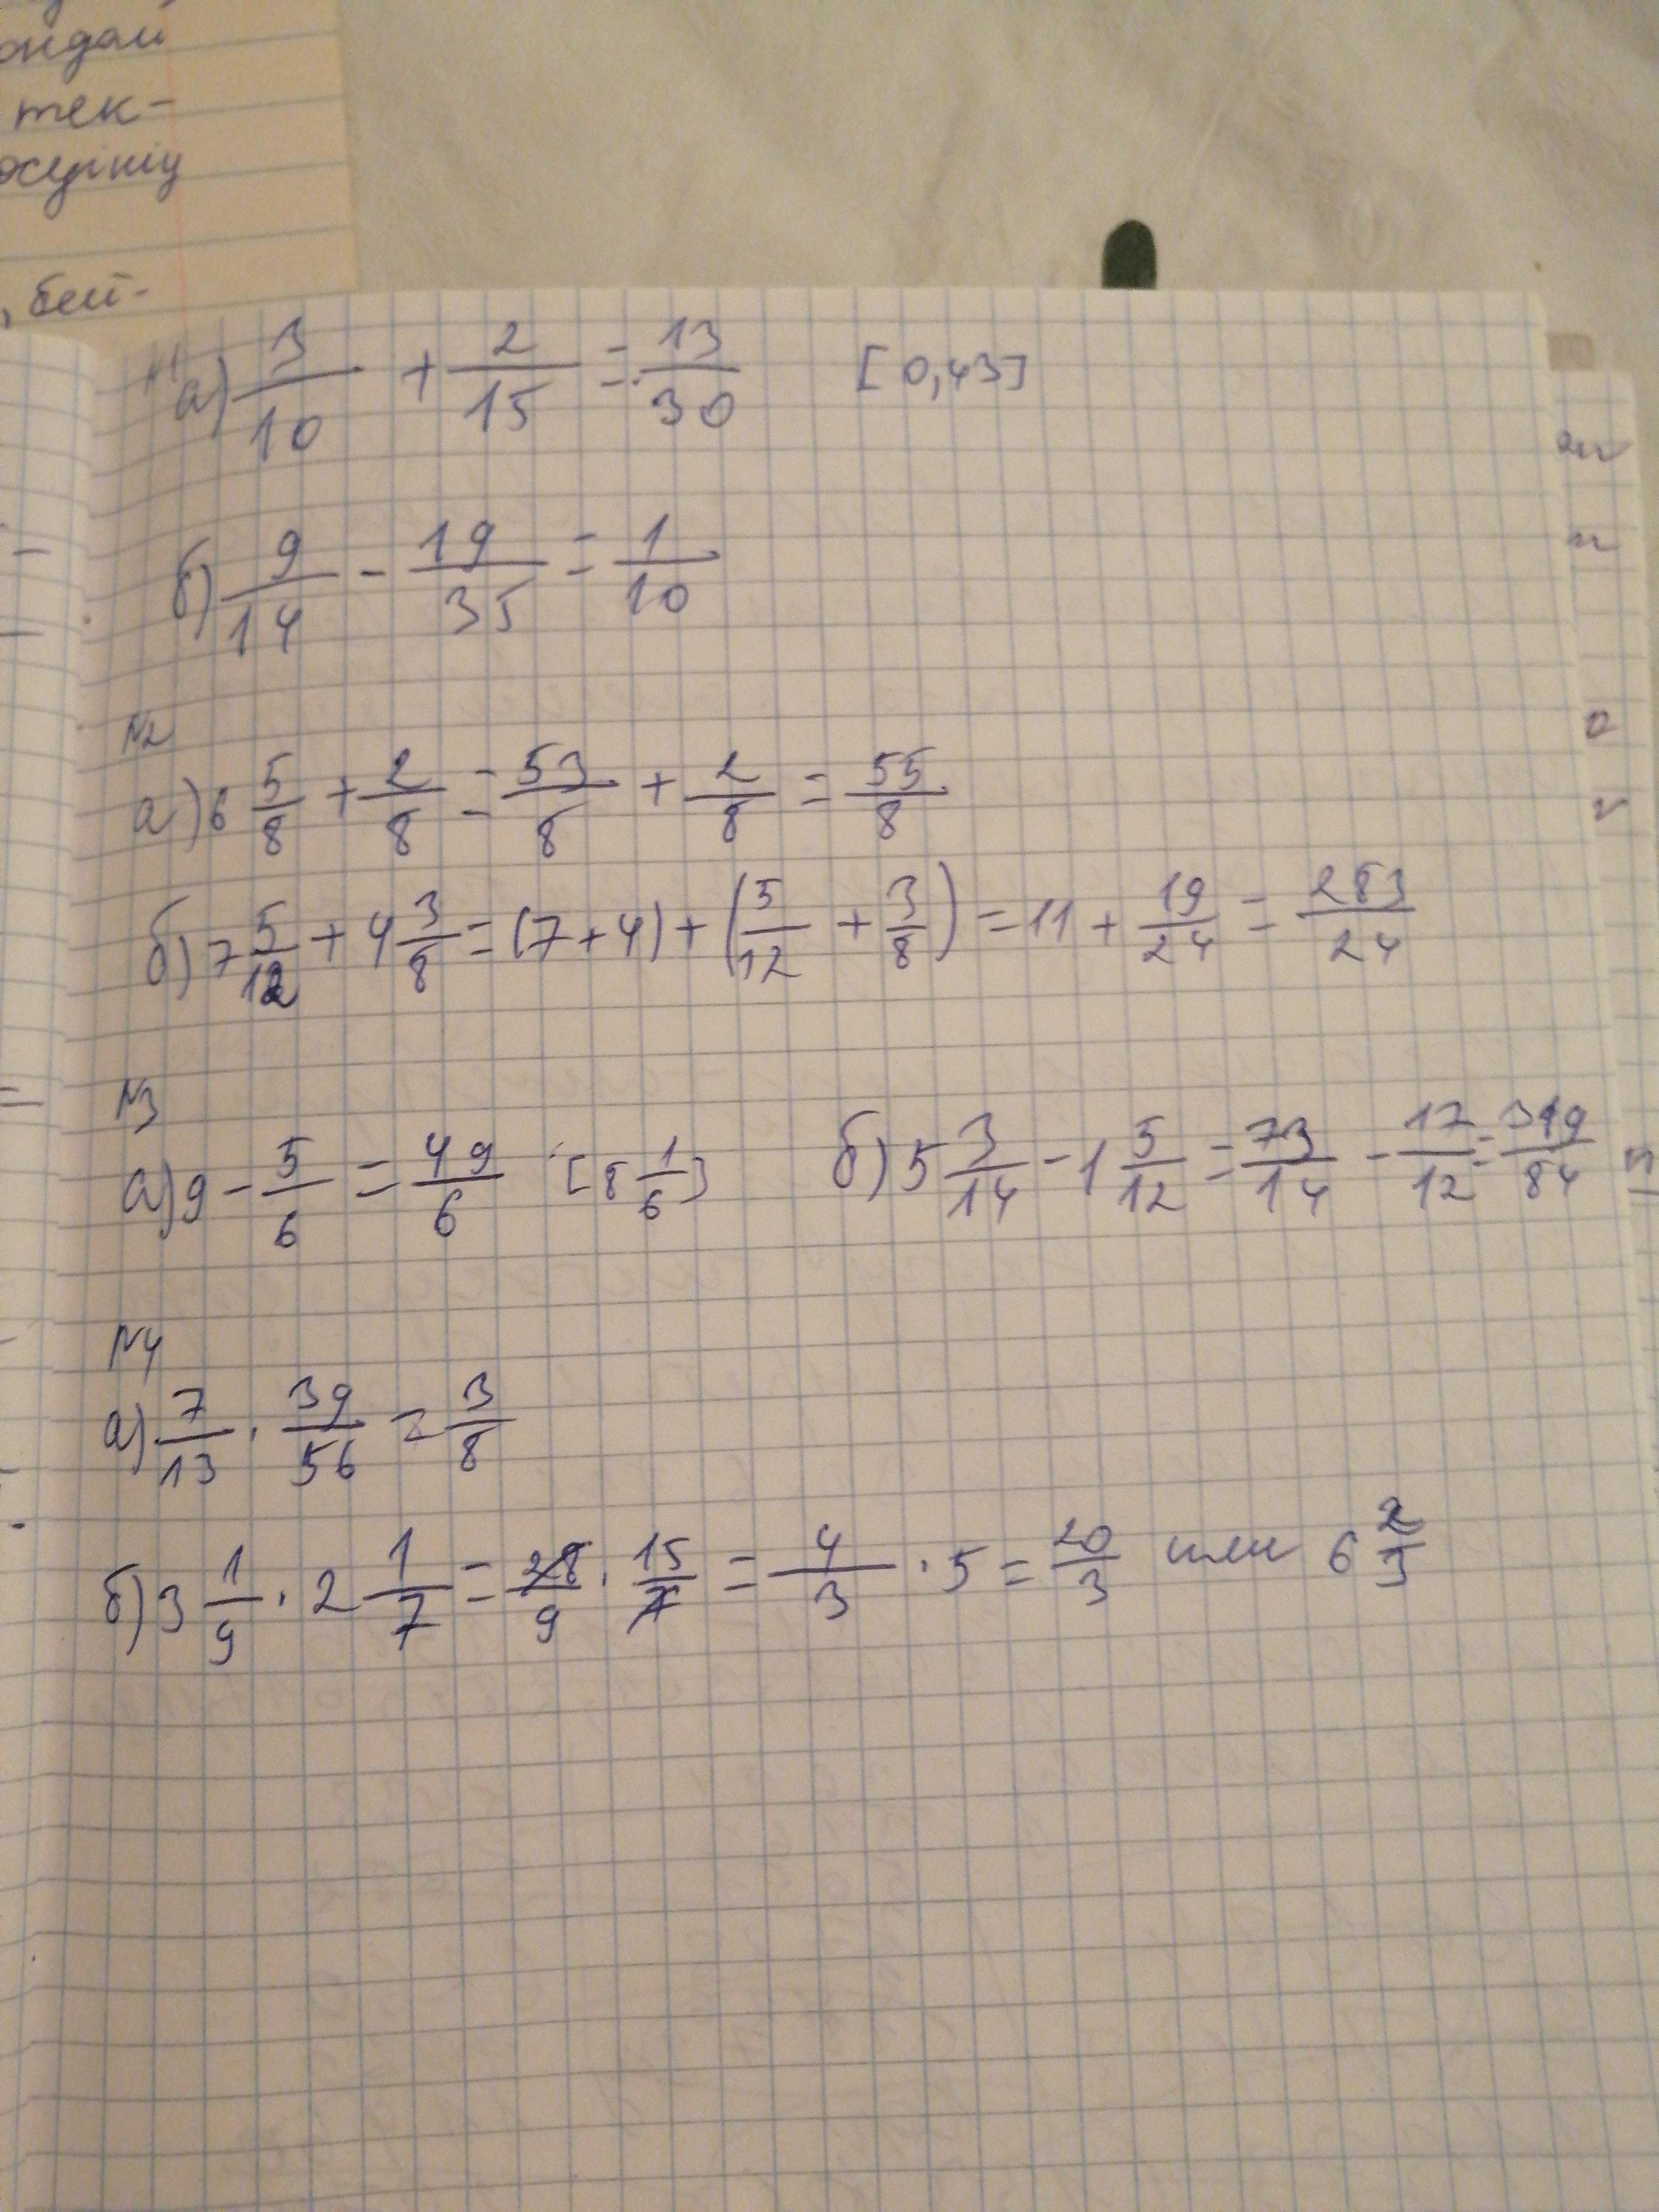 ондай
тек-
, бей-
№1
а) 3/10 + 2/15 = 13/30 [0,43]
б) 9/14 - 19/35 = 1/10
№2
а) 6 5/8 + 2/8 = 53/8 + 2/8 = 55/8
б) 7 5/12 + 4 3/8 = (7+4) + (5/12 + 3/8) = 11 + 19/24 = 283/24
№3
а) 9 - 5/6 = 49/6 [8 1/6]
б) 5 3/14 - 1 5/12 = 73/14 - 17/12 = 319/84
№4
а) 7/13 · 39/56 = 3/8
б) 3 1/9 · 2 1/7 = 28/9 · 15/7 = 4/3 · 5 = 20/3 или 6 2/3